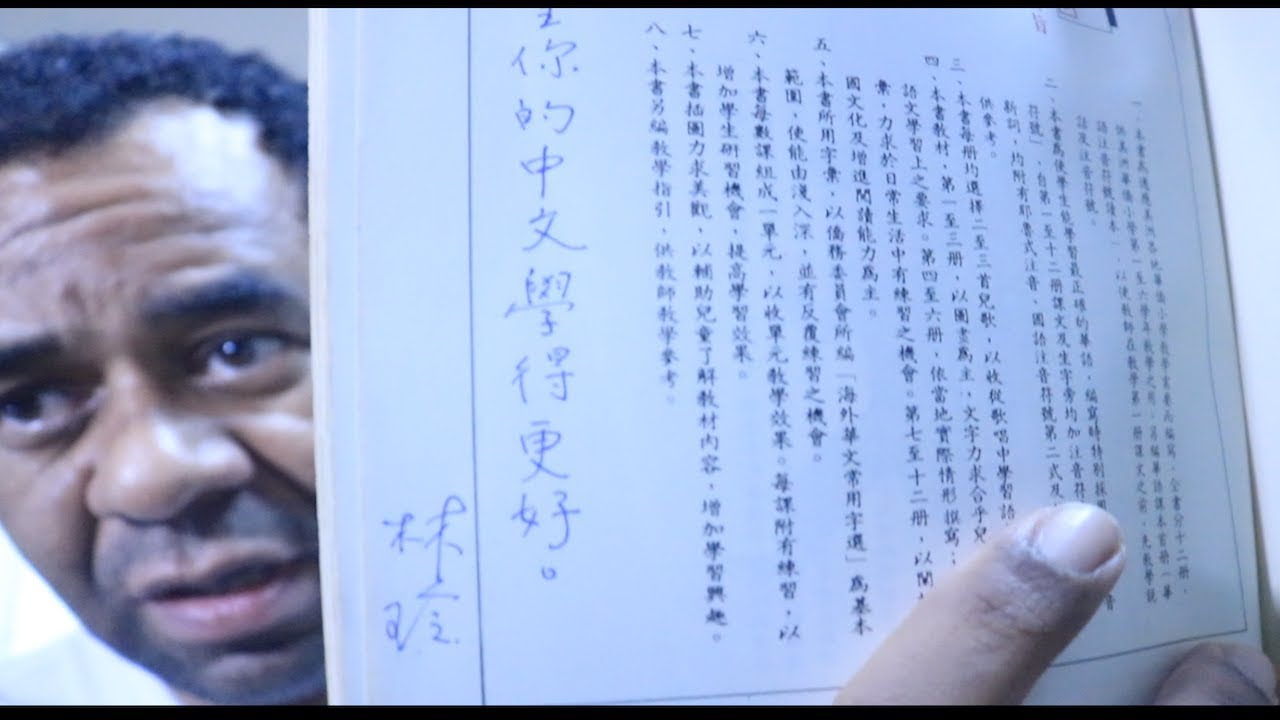 一、本書為適應美洲各地華僑小學教學需要而編寫，全書分十二冊，
供美洲華僑小學第一至六學年教學之用，另編華語課本首冊一華
語注音符號讀本一，以使教師在教學第一冊課文之前，先教學說
話及注音符號。
二、本書為使學生能學習最正確的華語，編寫時特別採用
符號」，自第一至十二冊課文及生字旁均加注音符
新詞，均附有耶魯式注音、國語注音符號第二式及
供參考。
三、本書每冊均選擇二至三首兒歌，以收從歌唱中學習語
四、本書教材，第一至三冊，以圖畫為主，文字力求合乎兒
語文學習上之要求。第四至六冊，依當地實際情形撰寫，
彙，力求於日常生活中有練習之機會。第七至十二冊，以闡
國文化及增進閱讀能力為主。
五、本書所用字彙，以僑務委員會所編「海外華文常用字選」為基本
範圍，使能由淺入深，並有反覆練習之機會。
六、本書每數課組成一單元，以收單元教學效果。每課附有練習，以
增加學生研習機會，提高學習效果。
七、本書插圖力求美觀，以輔助兒童了解教材內容，增加學習興趣。
八、本書另編教學指引，供教師教學參考。
你的中文學得更好。
林玲